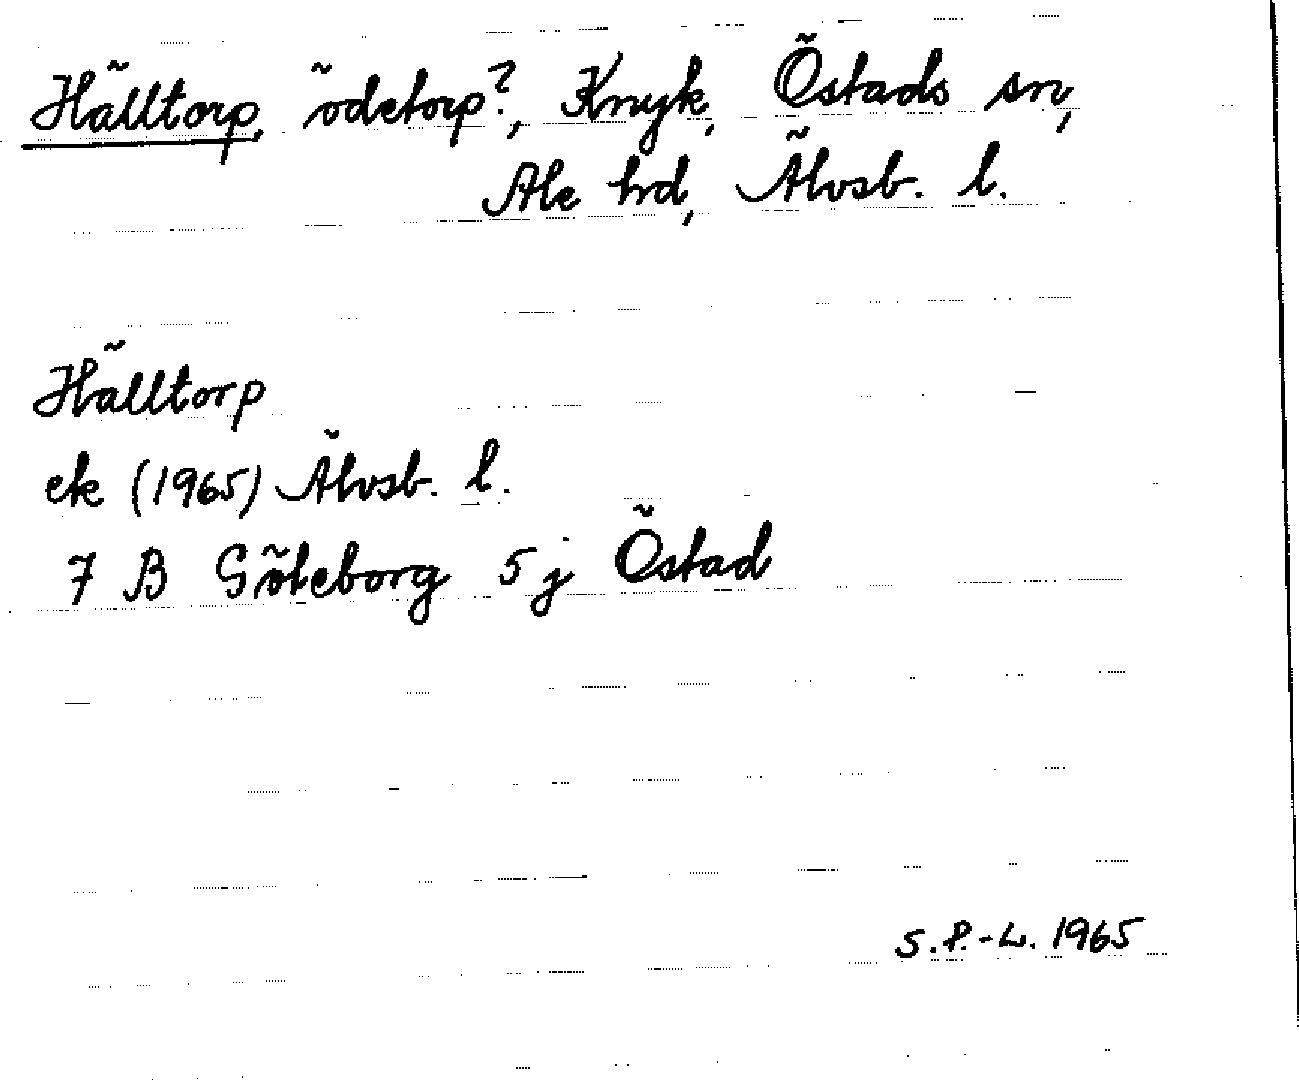 Hälltorp, ödetorp?, Knyk, Östads sn,
Ale hd, Älvsb. l.
Hälltorp
ek (1965) Älvsb. l.
7 B Göteborg 5 j Östad
S.P.-L. 1965